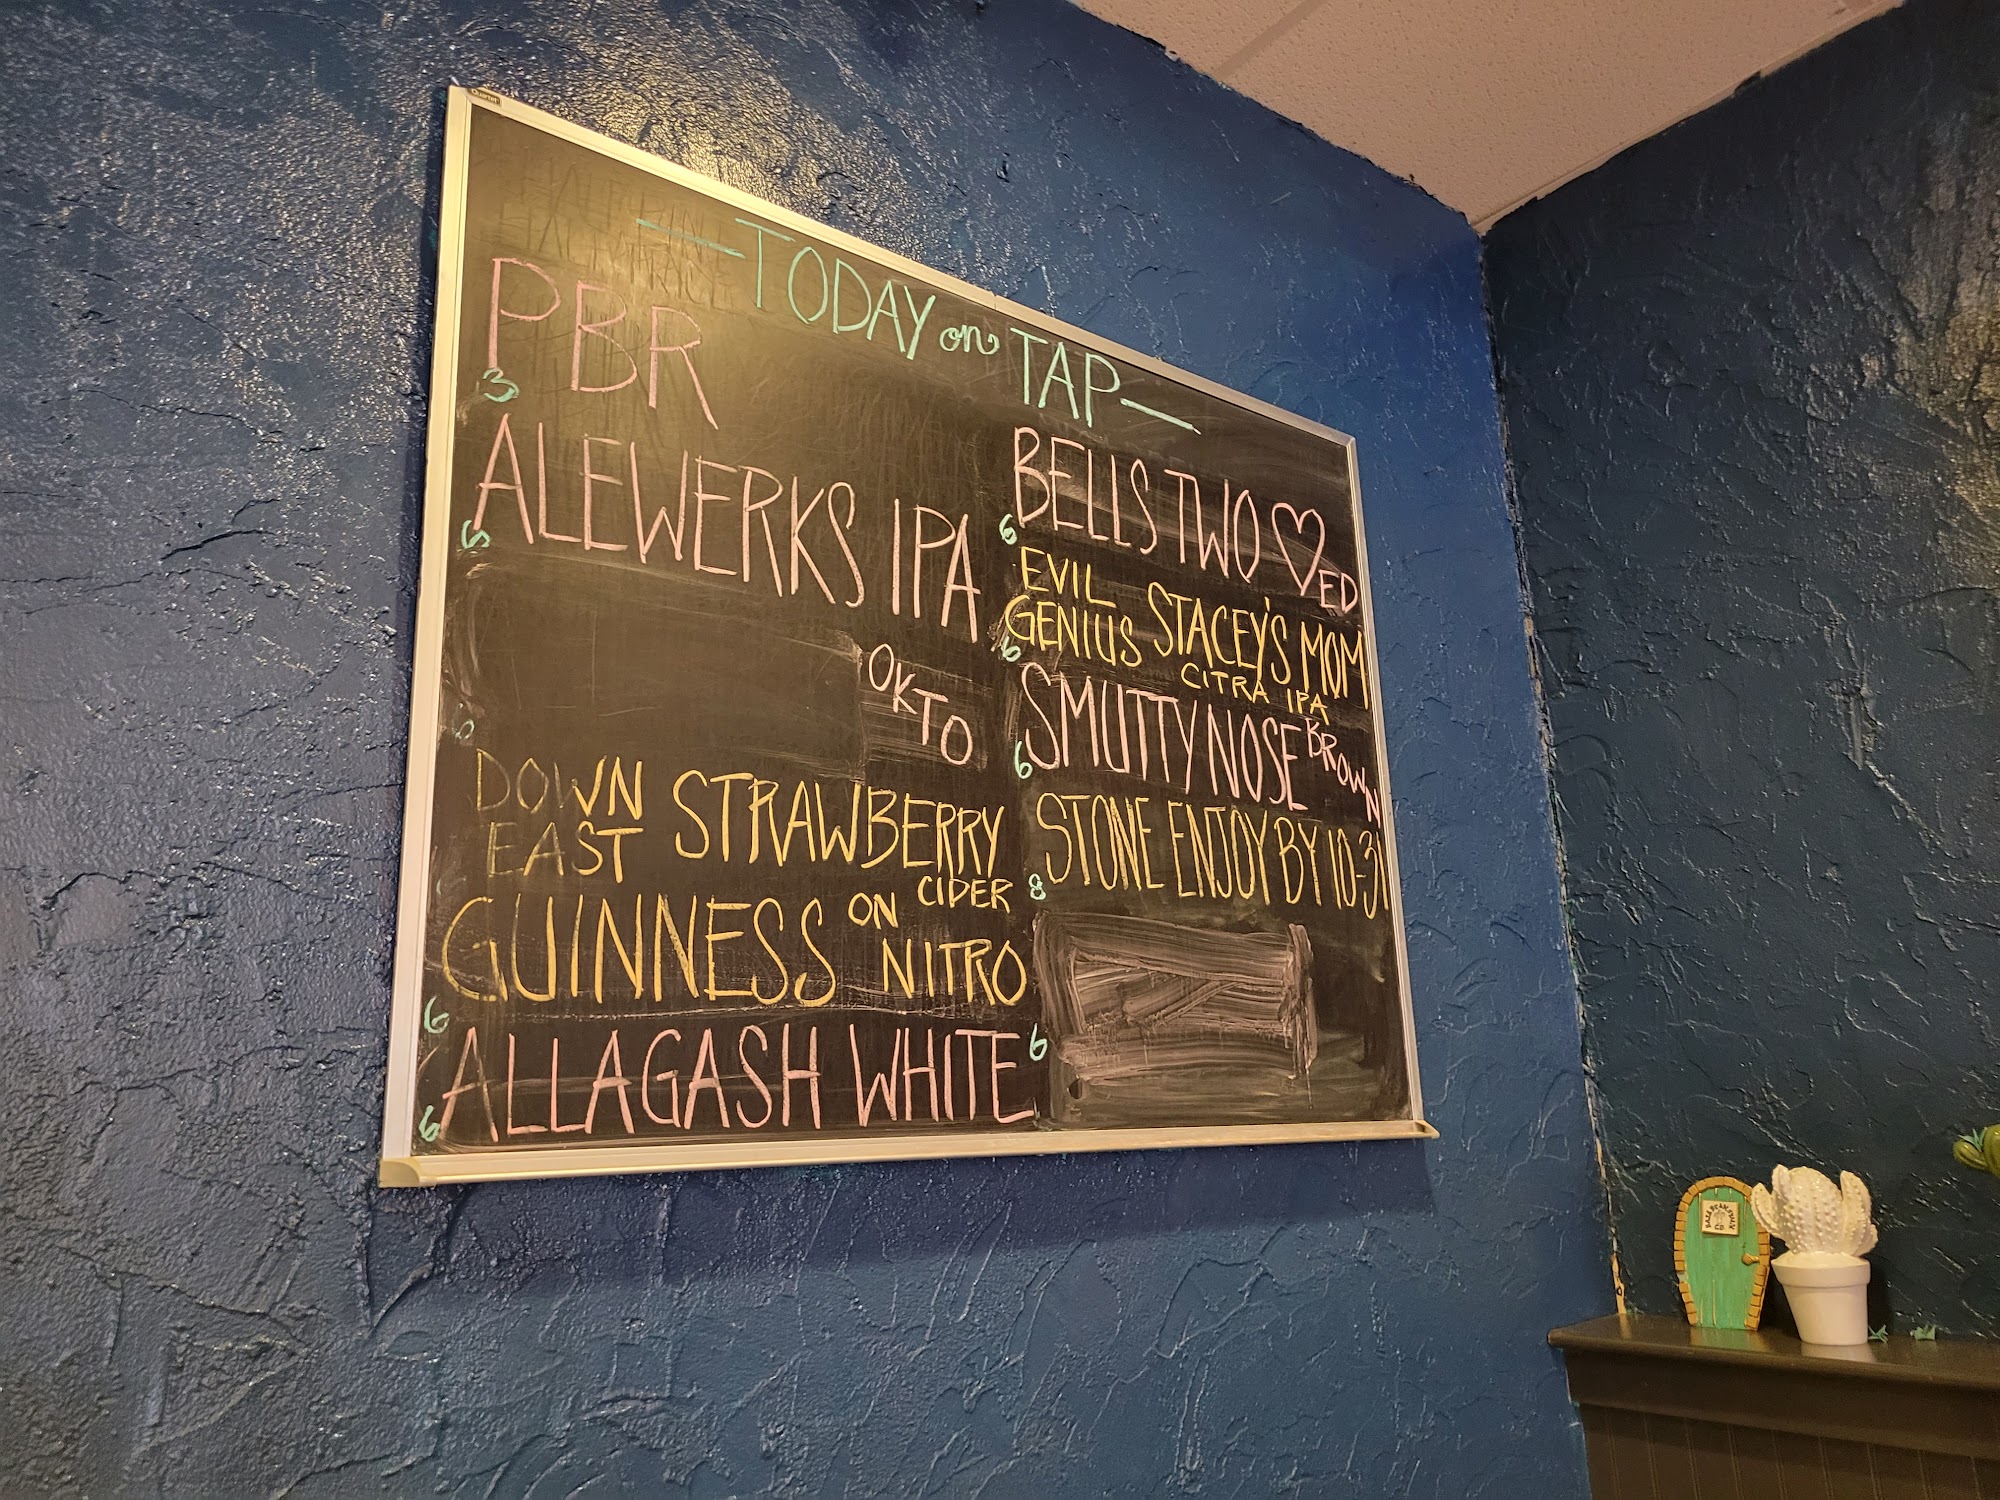 Quartet
— TODAY on TAP —
PBR
3
ALEWERKS IPA
6
OKTO
DOWN EAST STRAWBERRY CIDER
GUINNESS ON NITRO
6
ALLAGASH WHITE
6
BELLS TWO ♡ED
6
EVIL GENIUS STACEY'S MOM
CITRA IPA
6
SMUTTYNOSE BROWN
6
STONE ENJOY BY 10-31
8
6